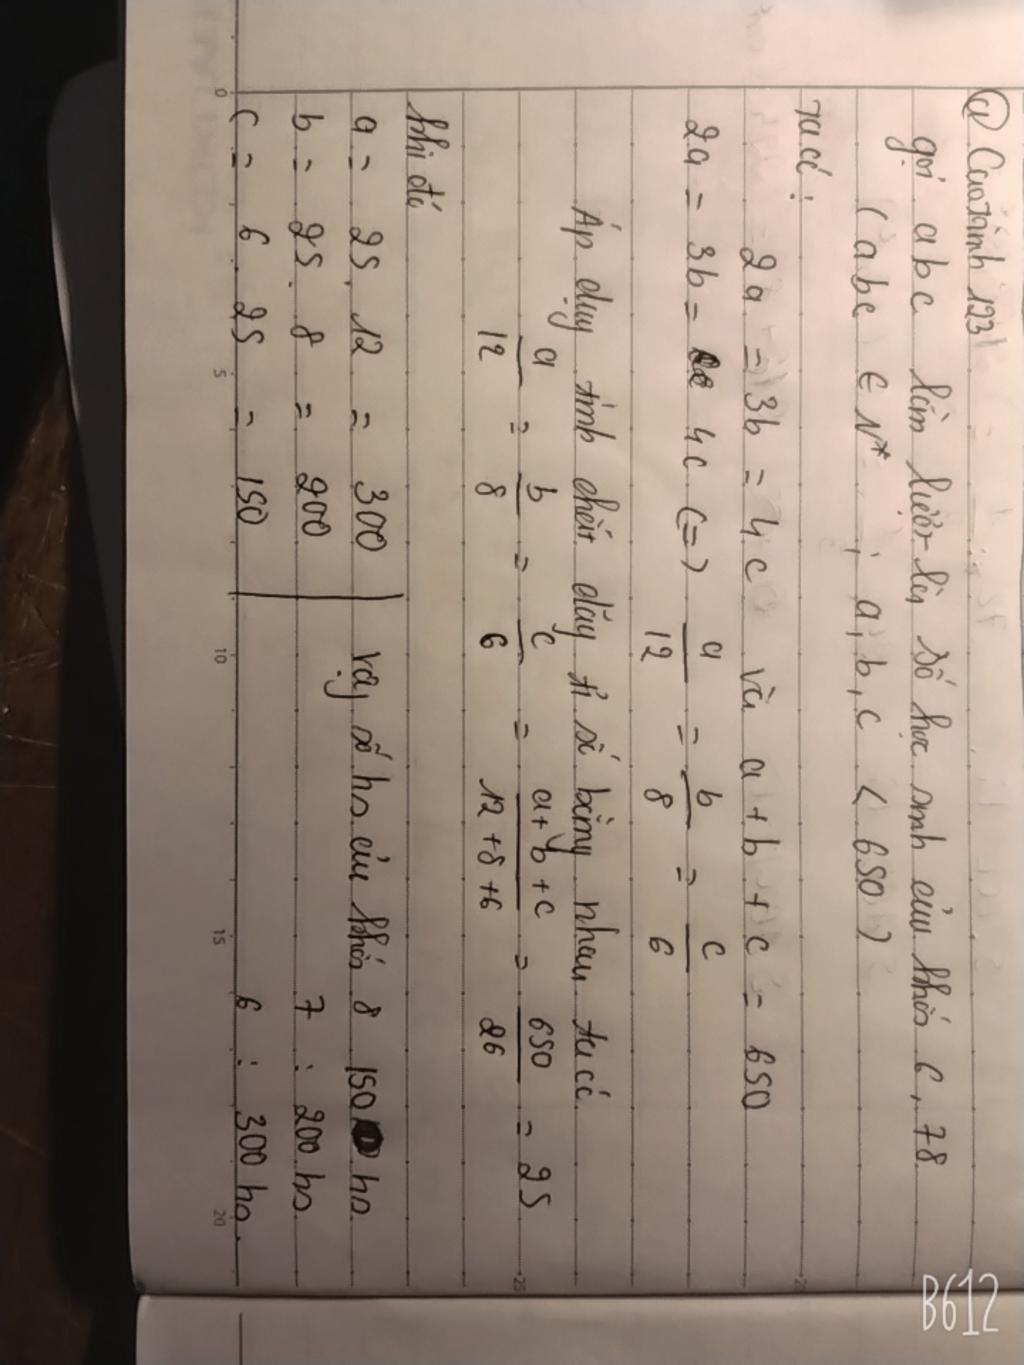 gọi a b c lần lượt là số học sinh của khối 6, 7 8
( a b c ∈ N* ; a, b, c < 650 )
Ta có :
2a = 3b = 4c và a + b + c = 650
2a = 3b = 4c (=) a/12 = b/8 = c/6
Áp dụg tính chất dãy tỉ số bằng nhau ta có
a/12 = b/8 = c/6 = a+b+c/12+8+6 = 650/26 = 25
khi đó
a = 25. 12 = 300
b = 25. 8 = 200
c = 6 . 25 = 150
vậy số hs của khối 8 150 hs
7 : 200 hs
6 : 300 hs.
0 5 10 15 20
B612